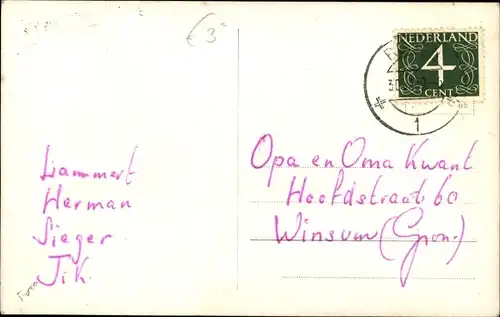 € 3=
NEDERLAND
4
CENT
1
Lammert
Herman
Sieger
Jik.
Opa en Oma Kwant
Hoofdstraat 60
Winsum (Gron.)